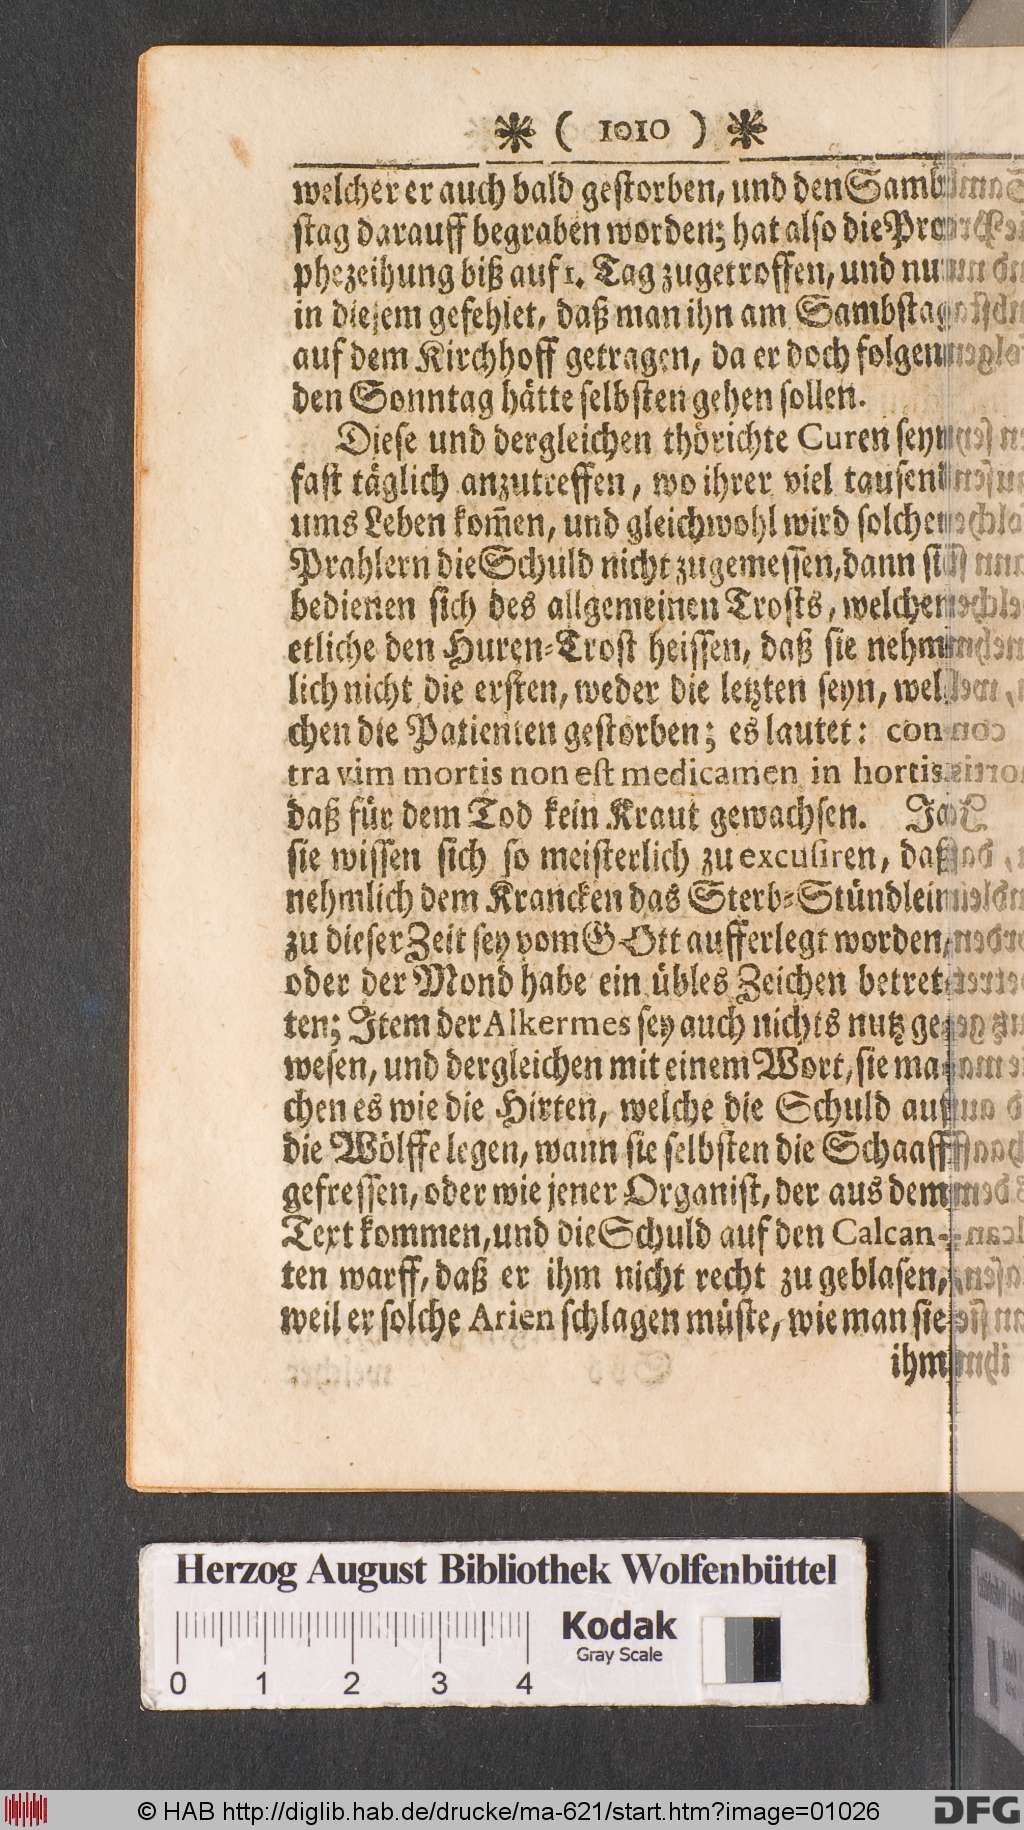 * ( 1010 ) *
welcher er auch bald gestorben, und den Samb⸗
stag darauff begraben worden; hat also die Pro⸗
phezeihung biß auf 1. Tag zugetroffen, und nur
in diesem gefehlet, daß man ihn am Sambstag
auf dem Kirchhoff getragen, da er doch folgen⸗
den Sonntag hätte selbsten gehen sollen.
Diese und dergleichen thörichte Curen seyn
fast täglich anzutreffen, wo ihrer viel tausend
ums Leben kom̃en, und gleichwohl wird solchen
Prahlern die Schuld nicht zugemessen, dann sie
bedienen sich des allgemeinen Trosts, welchen
etliche den Huren⸗Trost heissen, daß sie nehm⸗
lich nicht die ersten, weder die letzten seyn, wel⸗
chen die Patienten gestorben; es lautet: con-
tra vim mortis non est medicamen in hortis.
daß für dem Tod kein Kraut gewachsen. Ja
sie wissen sich so meisterlich zu excusiren, daß
nehmlich dem Krancken das Sterb⸗Stündlein
zu dieser Zeit sey vom GOtt aufferlegt worden,
oder der Mond habe ein übles Zeichen betret⸗
ten; Item der Alkermes sey auch nichts nutz ge⸗
wesen, und dergleichen mit einem Wort, sie ma⸗
chen es wie die Hirten, welche die Schuld auf
die Wölffe legen, wann sie selbsten die Schaaff
gefressen, oder wie jener Organist, der aus dem
Text kommen, und die Schuld auf den Calcan-
ten warff, daß er ihm nicht recht zu geblasen,
weil er solche Arien schlagen müste, wie man sie
ihm
Herzog August Bibliothek Wolfenbüttel
Kodak
Gray Scale
0 1 2 3 4
© HAB http://diglib.hab.de/drucke/ma-621/start.htm?image=01026
DFG